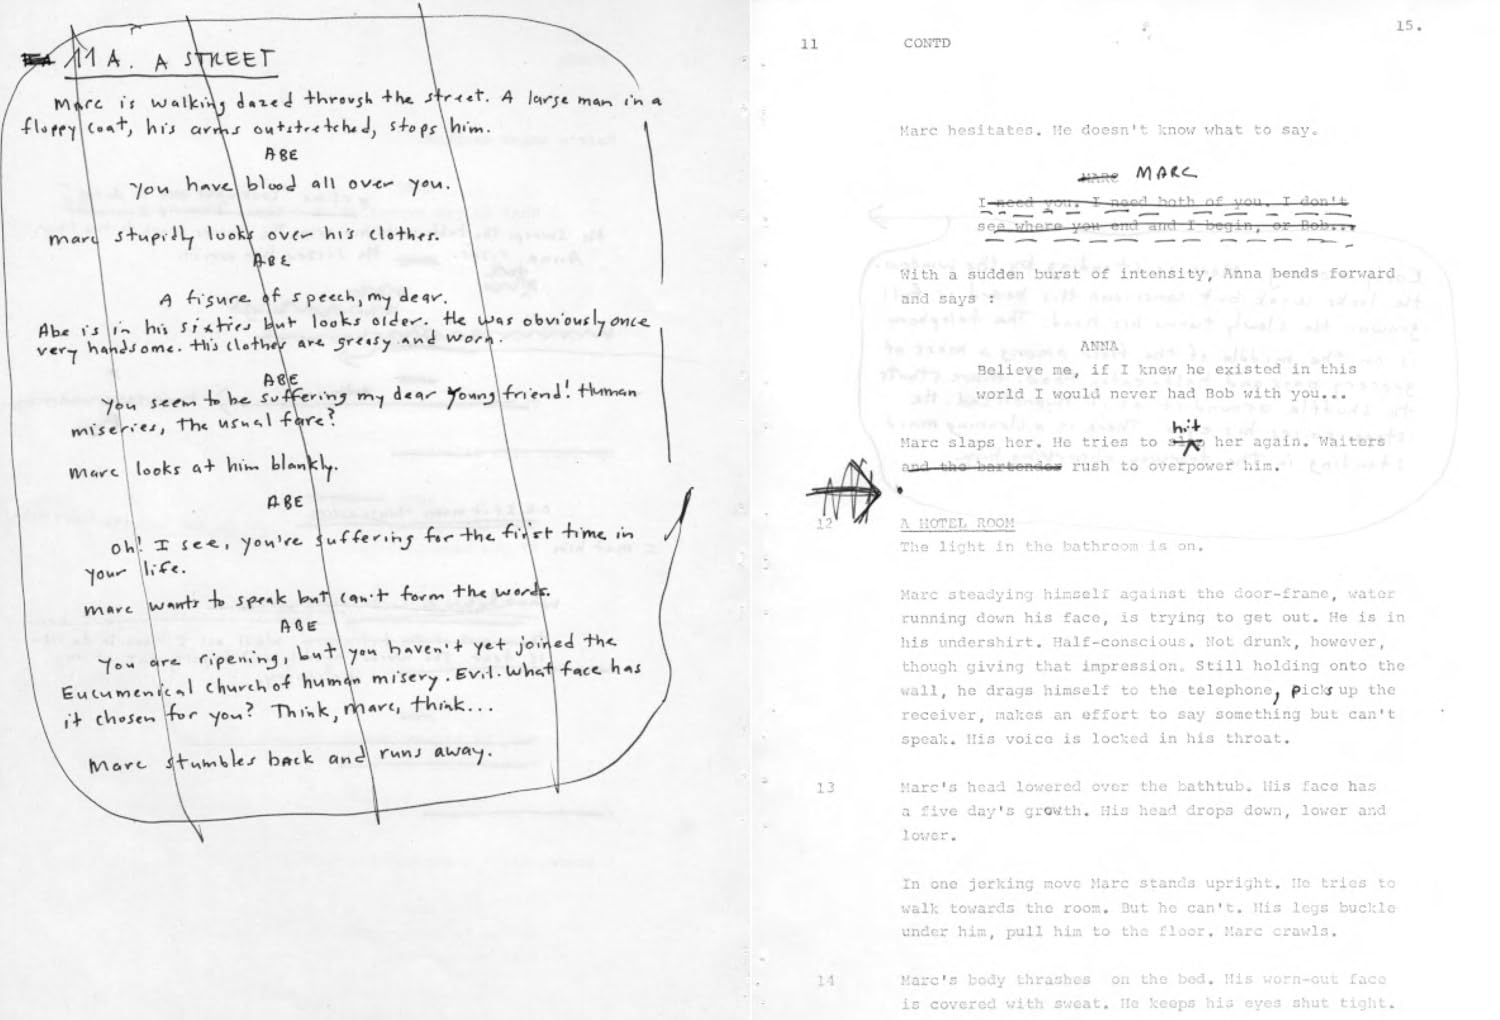 11A. A STREET
Marc is walking dazed through the street. A large man in a
floppy coat, his arms outstretched, stops him.
ABE
You have blood all over you.
Marc stupidly looks over his clothes.
ABE
A figure of speech, my dear.
Abe is in his sixties but looks older. He was obviously once
very handsome. His clothes are greasy and worn.
ABE
You seem to be suffering my dear young friend! Human
miseries, the usual fare?
Marc looks at him blankly.
ABE
Oh! I see, you're suffering for the first time in
your life.
Marc wants to speak but can't form the words.
ABE
You are ripening, but you haven't yet joined the
Eucumenical church of human misery. Evil. What face has
it chosen for you? Think, Marc, think...
Marc stumbles back and runs away.
15.
11 CONTD
Marc hesitates. He doesn't know what to say.
MARC MARC
I need you. I need both of you. I don't
see where you end and I begin, or Bob...
With a sudden burst of intensity, Anna bends forward
and says :
ANNA
Believe me, if I knew he existed in this
world I would never had Bob with you...
hit
Marc slaps her. He tries to slap her again. Waiters
and the bartender rush to overpower him.
12 A HOTEL ROOM
The light in the bathroom is on.
Marc steadying himself against the door-frame, water
running down his face, is trying to get out. He is in
his undershirt. Half-conscious. Not drunk, however,
though giving that impression. Still holding onto the
wall, he drags himself to the telephone, picks up the
receiver, makes an effort to say something but can't
speak. His voice is locked in his throat.
13 Marc's head lowered over the bathtub. His face has
a five day's growth. His head drops down, lower and
lower.
In one jerking move Marc stands upright. He tries to
walk towards the room. But he can't. His legs buckle
under him, pull him to the floor. Marc crawls.
14 Marc's body thrashes on the bed. His worn-out face
is covered with sweat. He keeps his eyes shut tight.